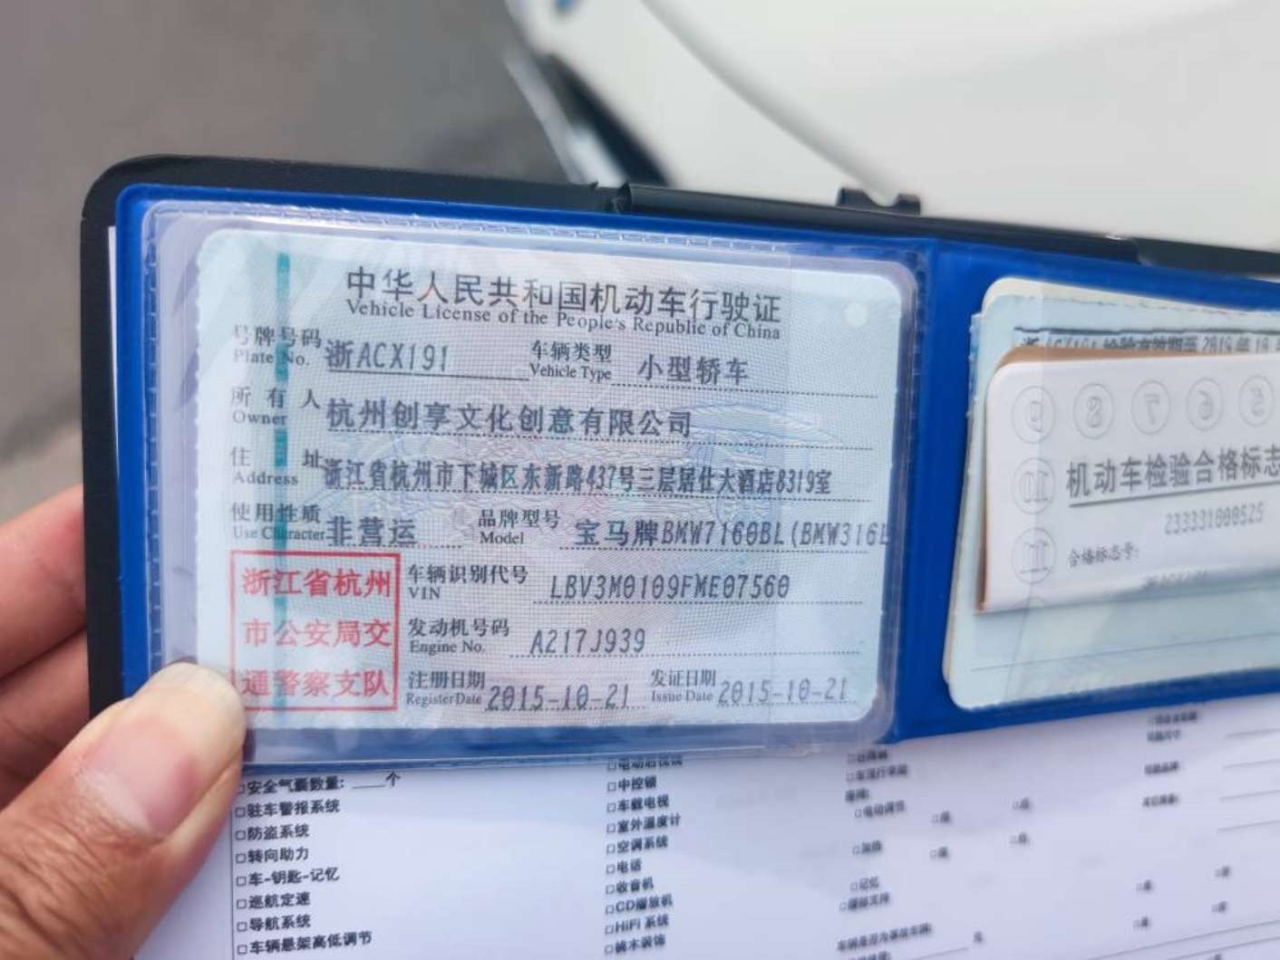 中华人民共和国机动车行驶证
Vehicle License of the People's Republic of China
号牌号码 浙ACX191 车辆类型 小型轿车
Plate No. Vehicle Type
所有人 杭州创享文化创意有限公司
Owner
住址 浙江省杭州市下城区东新路437号三层居仕大酒店8319室
Address
使用性质 非营运 品牌型号 宝马牌BMW7160BL(BMW316L
Use Character Model
浙江省杭州
市公安局交
通警察支队
车辆识别代号 LBV3M0109FME07560
VIN
发动机号码 A217J939
Engine No.
注册日期 2015-10-21 发证日期 2015-10-21
Register Date Issue Date
9 8 7 6 5
10
11
机动车检验合格标志
233331000525
合格标志号:
□安全气囊数量: ____个
□驻车警报系统
□防盗系统
□转向助力
□车-钥匙-记忆
□巡航定速
□导航系统
□车辆悬架高低调节
□中控锁
□车载电视
□室外温度计
□空调系统
□电话
□收音机
□CD播放机
□HiFi 系统
□桃木装饰
□电动调节
□加热
□记忆
□腰部支持